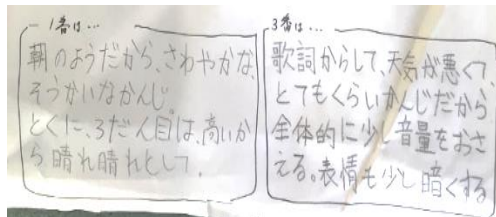 1番は…
朝のようだから、さわやかな、
そうかいなかんじ。
とくに、3だん目は、高いか
ら、晴れ晴れとして。
3番は…
歌詞からして、天気が悪くて、
とてもくらいかんじだから
全体的に少し音量をおさ
える。表情も少し暗くする